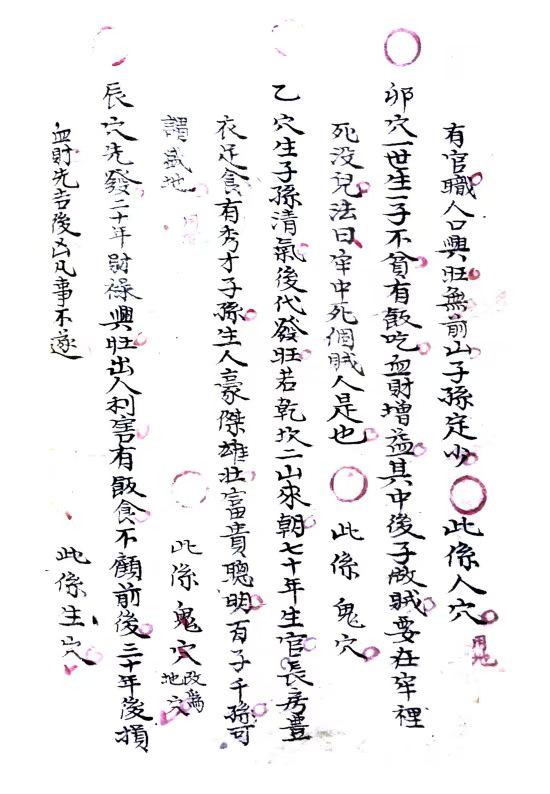 有官職人口興旺無前山子孫定少 此係人穴 用地
卯穴一世生一子不貧有飯吃血財增益其中後子做賊要在牢裡
死没兒法曰牢中死個賊人是也 此係鬼穴
乙穴生子孫清氣後代發旺若乾坎二山來朝七十年生官長房豊
衣足食有秀才子孫生人豪傑雄壯富貴聰明百子千孫可
謂盛地 此係鬼穴 改為地穴
辰穴先發二十年財祿興旺出人利害有飯食不顧前後三十年後損
血財先吉後凶凡事不遂 此係生穴